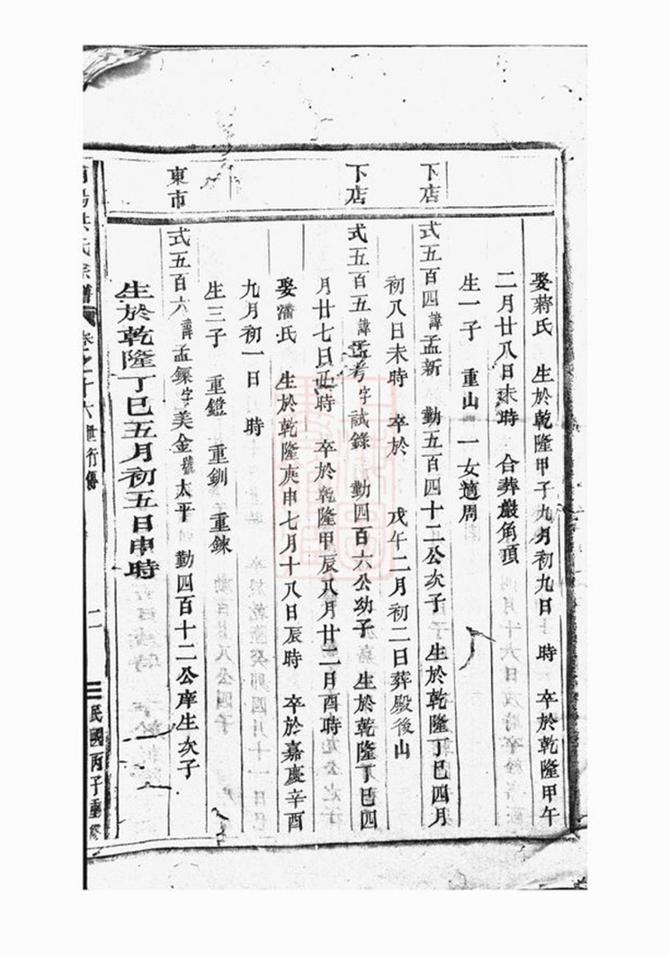 娶蔣氏 生於乾隆甲子九月初九日 時 卒於乾隆甲午
二月廿八日未時 合葬巖角頂
生一子 重山 一女適周
下店
式五百四諱孟新 勤五百四十二公次子 生於乾隆丁巳四月
初八日未時 卒於 戊午二月初二日葬殿後山
下店
式五百五諱孟考字試錄 勤四百六公幼子 生於乾隆丁巳四
月廿七日 時 卒於乾隆甲辰八月廿二月酉時
娶潘氏 生於乾隆庚申七月十八日辰時 卒於嘉慶辛酉
九月初一日 時
生三子 重鐙 重釧 重鍊
東市
式五百六諱孟 字美金號太平 勤四百十二公庠生次子
生於乾隆丁巳五月初五日申時
陽洪氏宗譜 卷之十六 世行傳 二 民國丙子重修